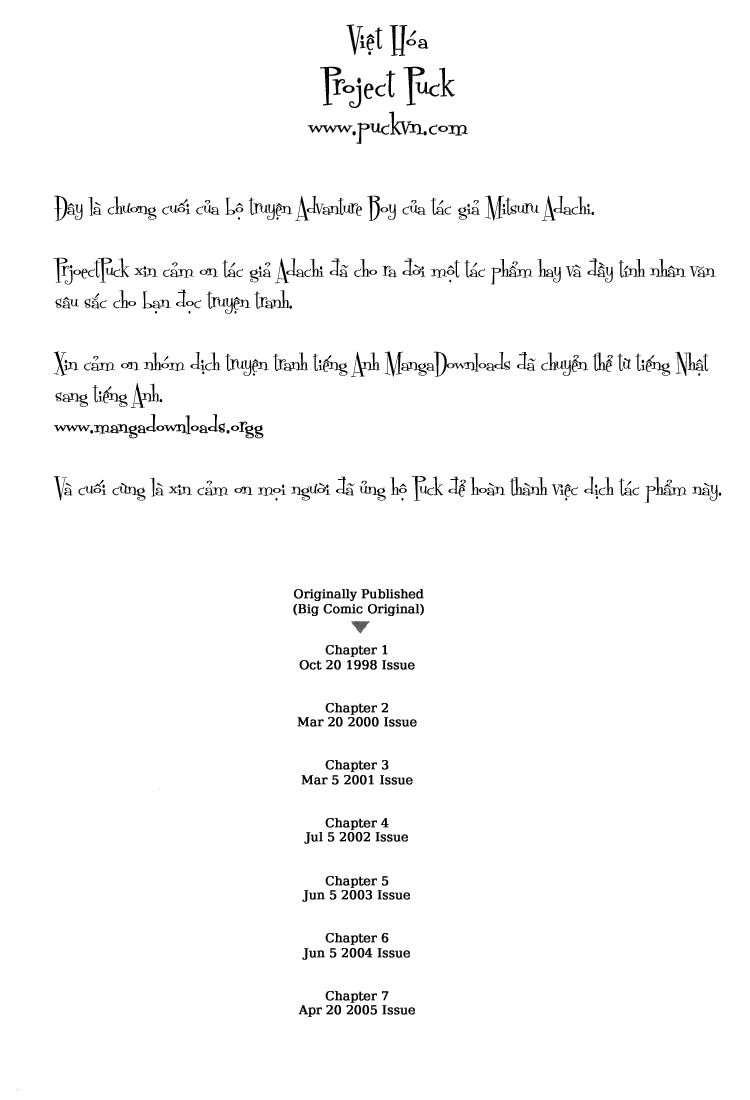 Việt Hóa
Project Puck
www.puckvn.com
Đây là chương cuối của bộ truyện Advanture Boy của tác giả Mitsuru Adachi.
PrjoectPuck xin cảm ơn tác giả Adachi đã cho ra đời một tác phẩm hay và đầy tính nhân văn
sâu sắc cho bạn đọc truyện tranh.
Xin cảm ơn nhóm dịch truyện tranh tiếng Anh MangaDownloads đã chuyển thể từ tiếng Nhật
sang tiếng Anh.
www.mangadownloads.orgg
Và cuối cùng là xin cảm ơn mọi người đã ủng hộ Puck để hoàn thành việc dịch tác phẩm này.
Originally Published
(Big Comic Original)
Chapter 1
Oct 20 1998 Issue
Chapter 2
Mar 20 2000 Issue
Chapter 3
Mar 5 2001 Issue
Chapter 4
Jul 5 2002 Issue
Chapter 5
Jun 5 2003 Issue
Chapter 6
Jun 5 2004 Issue
Chapter 7
Apr 20 2005 Issue